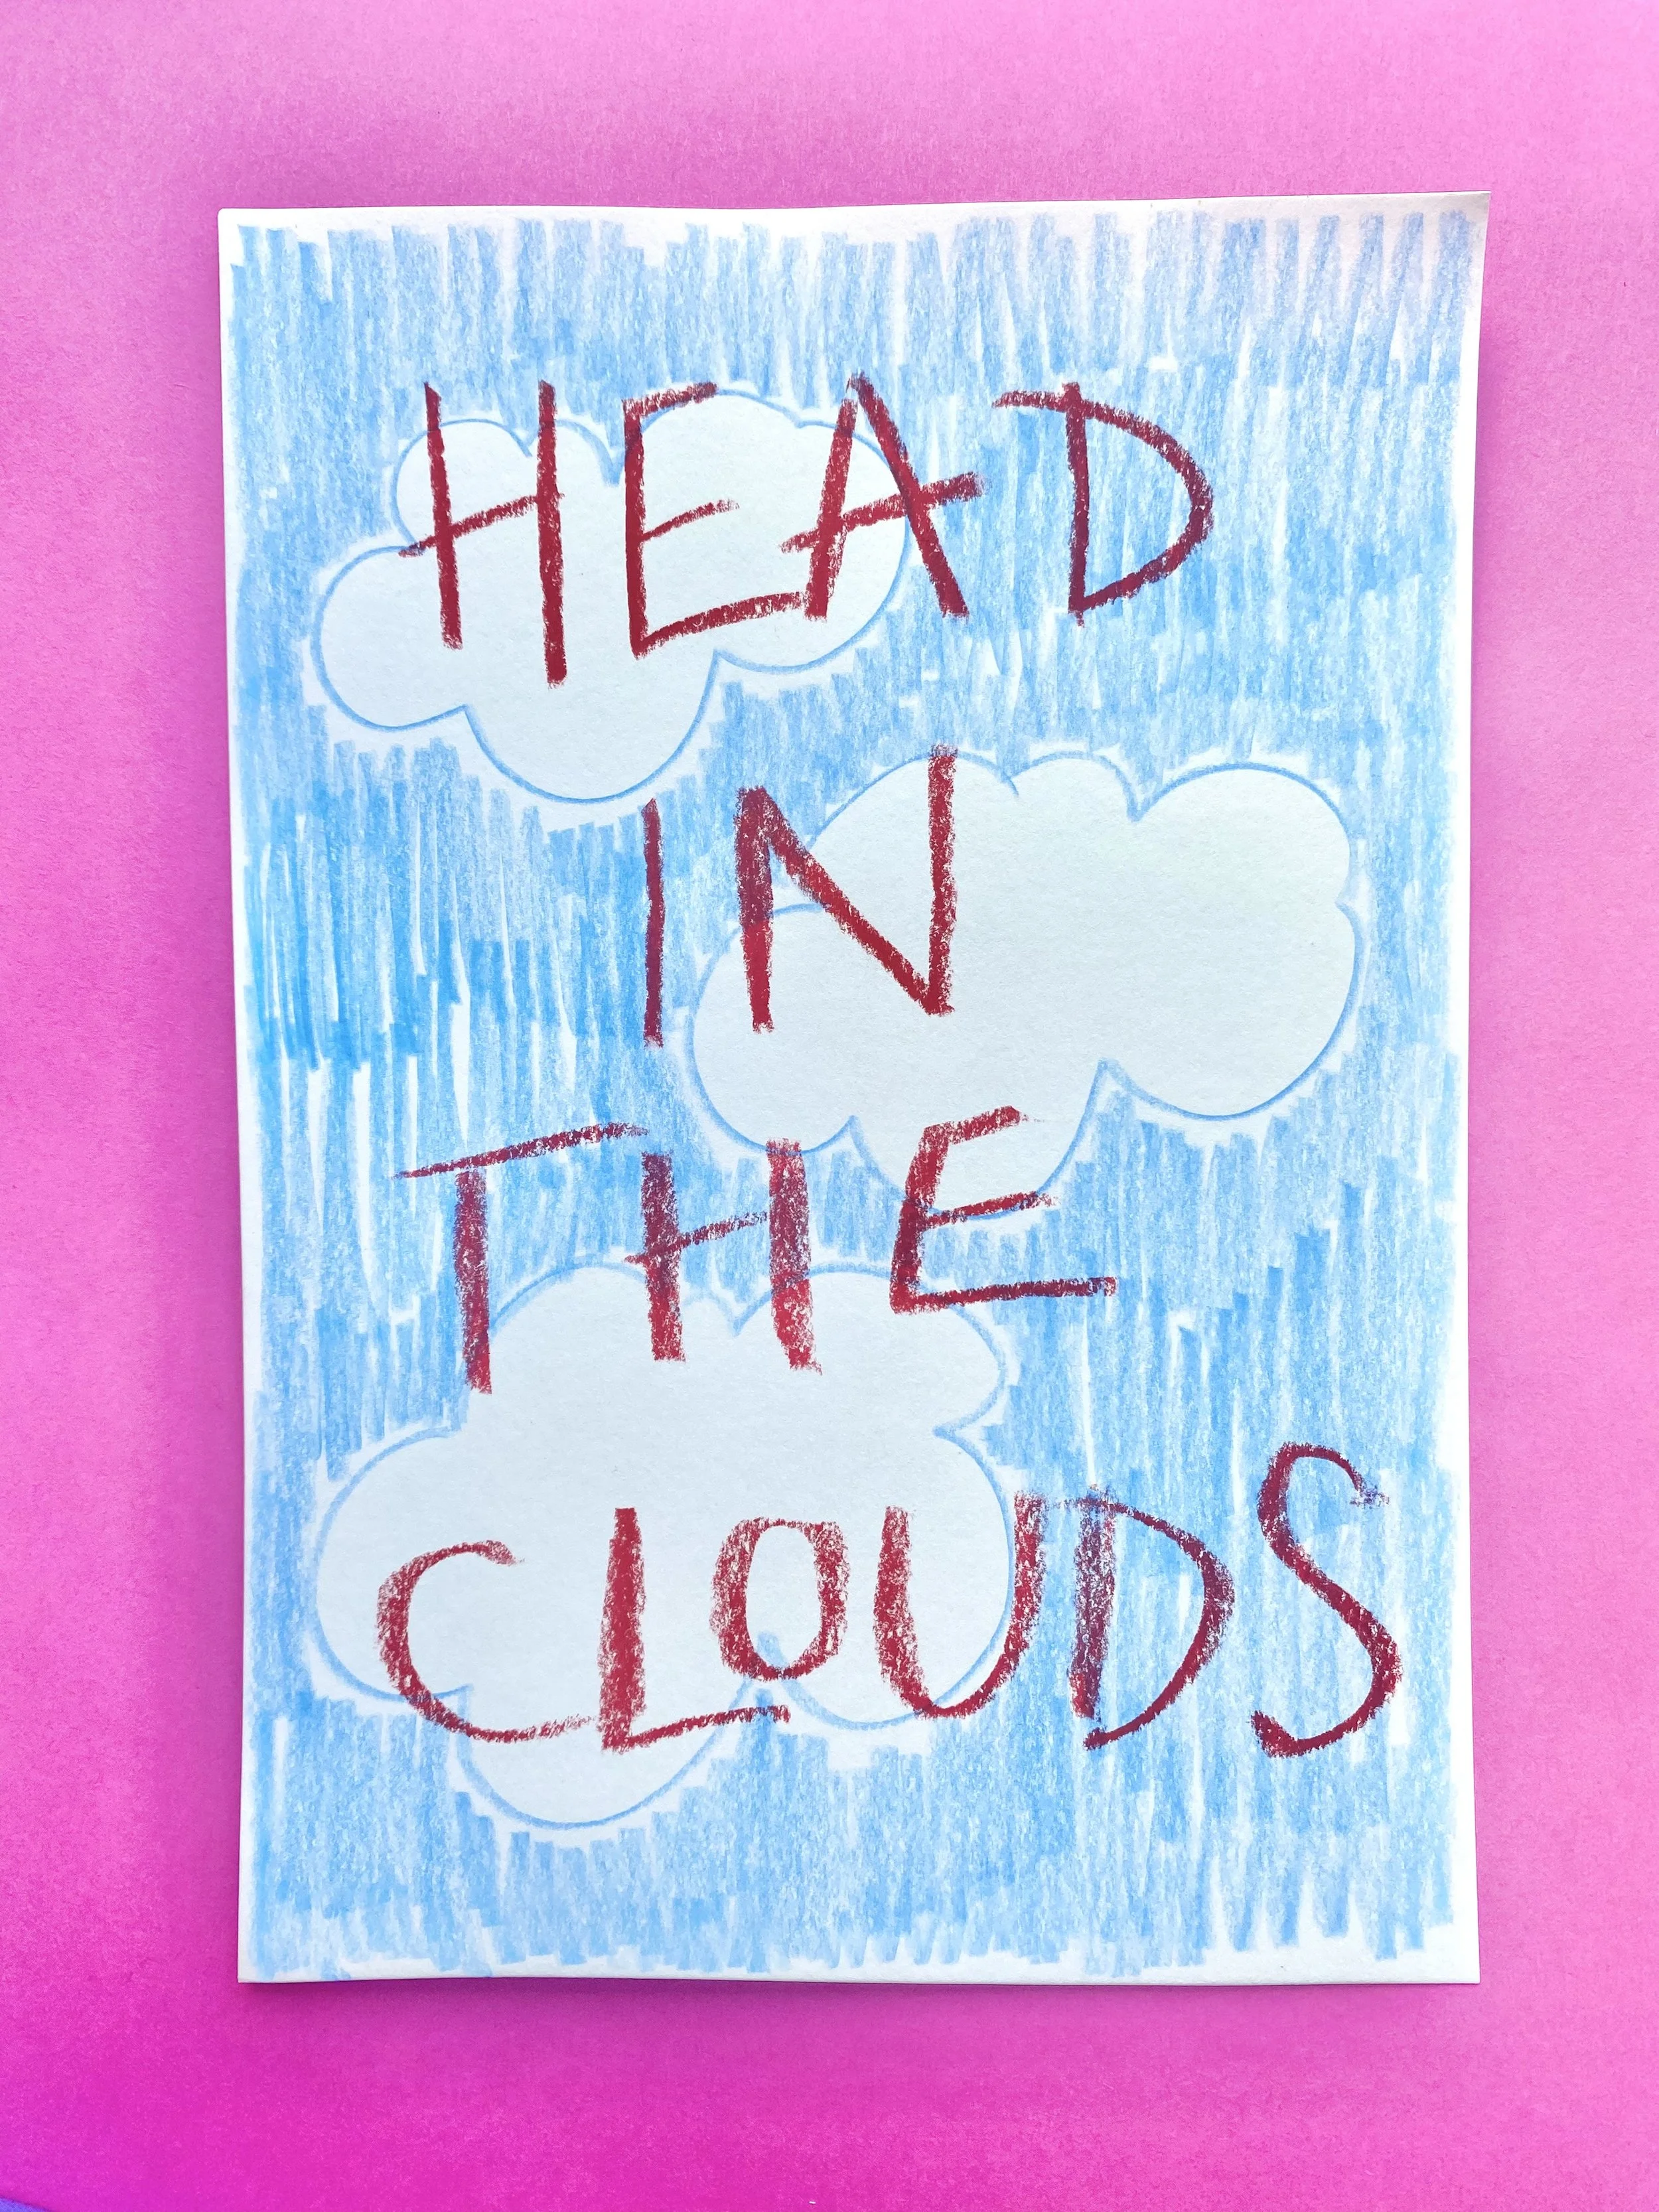 HEAD
IN
THE
CLOUDS